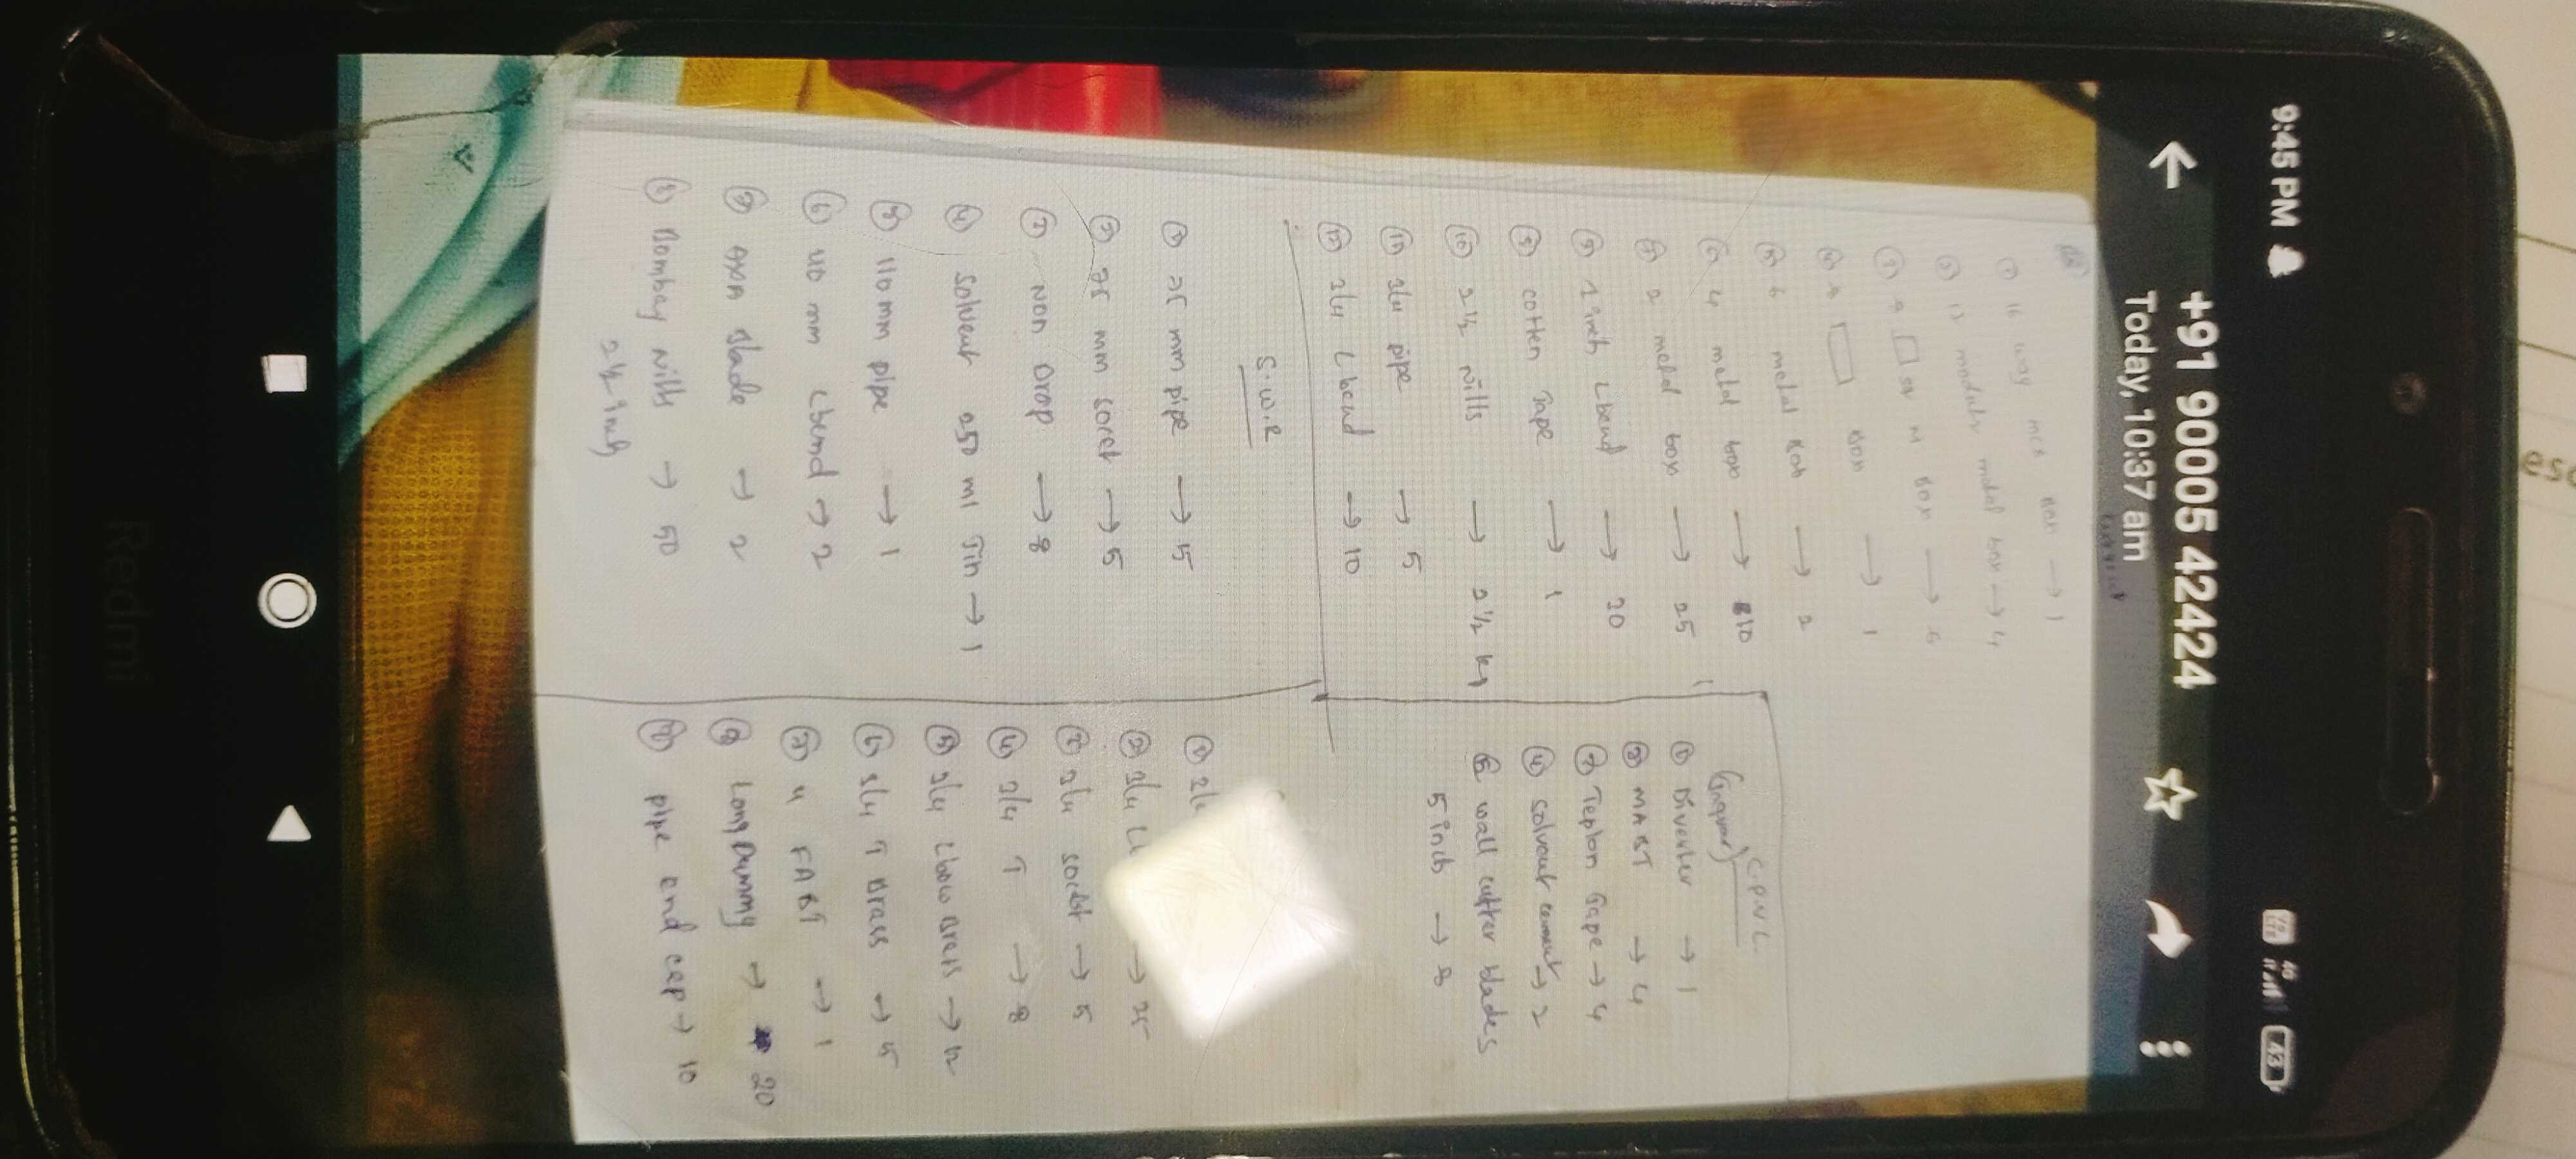 9:45 PM
43
+91 90005 42424
Today, 10:37 am
① 16 way MCB Box → 1
② 12 module metal box → 4
③ Box →
④ 8 Box → 1
⑤ 6 metal Box → 2
⑥ 4 metal box → 10
⑦ 2 metal box → 25
⑧ 1 inch Lbend → 20
⑨ cotten Tape → 1
⑩ 2½ Nills → 2½ kg
⑪ 3/4 pipe → 5
⑫ 3/4 Lbend → 10
S.W.R
① 75 mm pipe → 5
② 75 mm socet → 5
③ Non Drop → 8
④ Solvent 250 ml Tin → 1
⑤ 110 mm pipe → 1
⑥ 40 mm Lbend → 2
⑦ AXA Blade → 2
⑧ Bombay Nills → 50
2½ Inch
C.P.V.C
(Jaquar)
① Diverter → 1
② MABT → 4
③ Teplon Tape → 4
④ Solvent cement → 2
⑤ wall cutter blades
5 inch → 8
① 3/4
② 3/4 → 25
③ 3/4 socet → 5
④ 3/4 T → 8
⑤ 3/4 Lbow Brass → 12
⑥ 3/4 T Brass → 5
⑦ 4 FABT → 1
⑧ Long Dummy → 20
⑨ pipe end cap → 10
Redmi